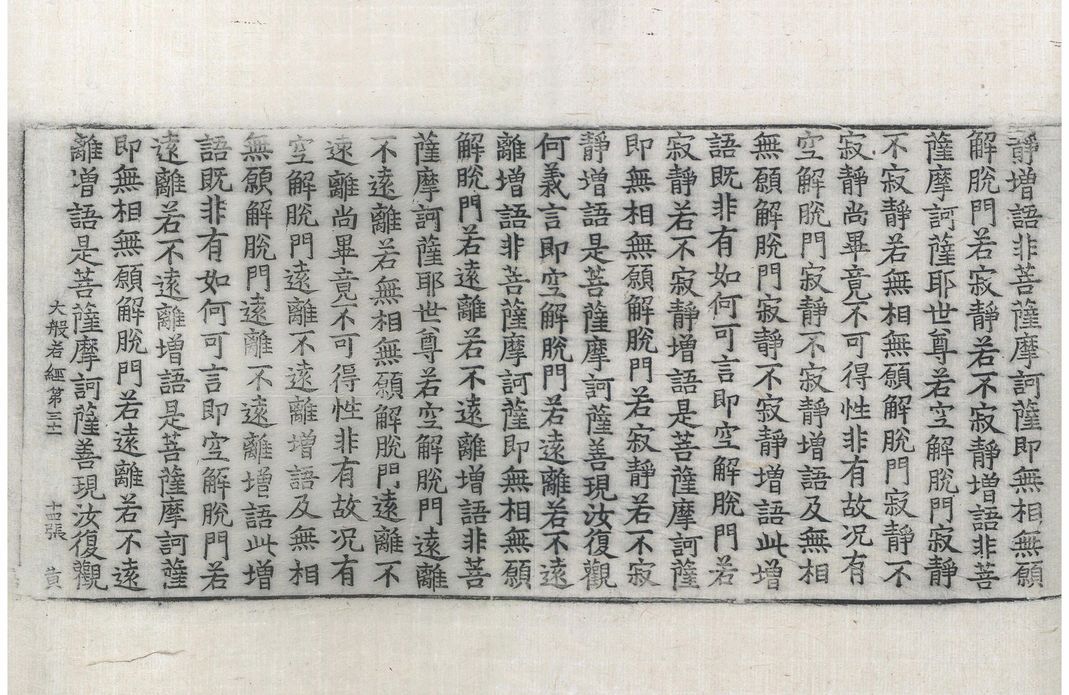 靜增語非菩薩摩訶薩即無相無願
解脫門若寂靜若不寂靜增語非菩
薩摩訶薩耶世尊若空解脫門寂靜
不寂靜若無相無願解脫門寂靜不
寂靜尚畢竟不可得性非有故况有
空解脫門寂靜不寂靜增語及無相
無願解脫門寂靜不寂靜增語此增
語既非有如何可言即空解脫門若
寂靜若不寂靜增語是菩薩摩訶薩
即無相無願解脫門若寂靜若不寂
靜增語是菩薩摩訶薩善現汝復觀
何義言即空解脫門若遠離若不遠
離增語非菩薩摩訶薩即無相無願
解脫門若遠離若不遠離增語非菩
薩摩訶薩耶世尊若空解脫門遠離
不遠離若無相無願解脫門遠離不
遠離尚畢竟不可得性非有故况有
空解脫門遠離不遠離增語及無相
無願解脫門遠離不遠離增語此增
語既非有如何可言即空解脫門若
遠離若不遠離增語是菩薩摩訶薩
即無相無願解脫門若遠離若不遠
離增語是菩薩摩訶薩善現汝復觀
大般若經第三十一 十四張 黃